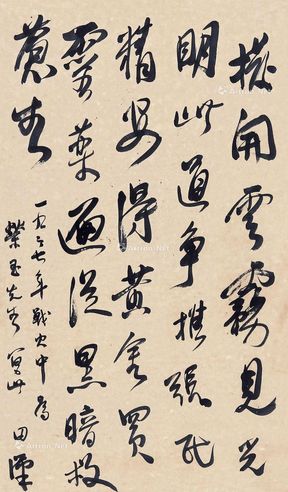 撥開雲霧見光
明此道爭推張氏
精安得黃金買
靈藥遍從黑暗救
蒼生
一九三七年戰火中為
先生寫此 田漢
Artron.Net
Artron.Net